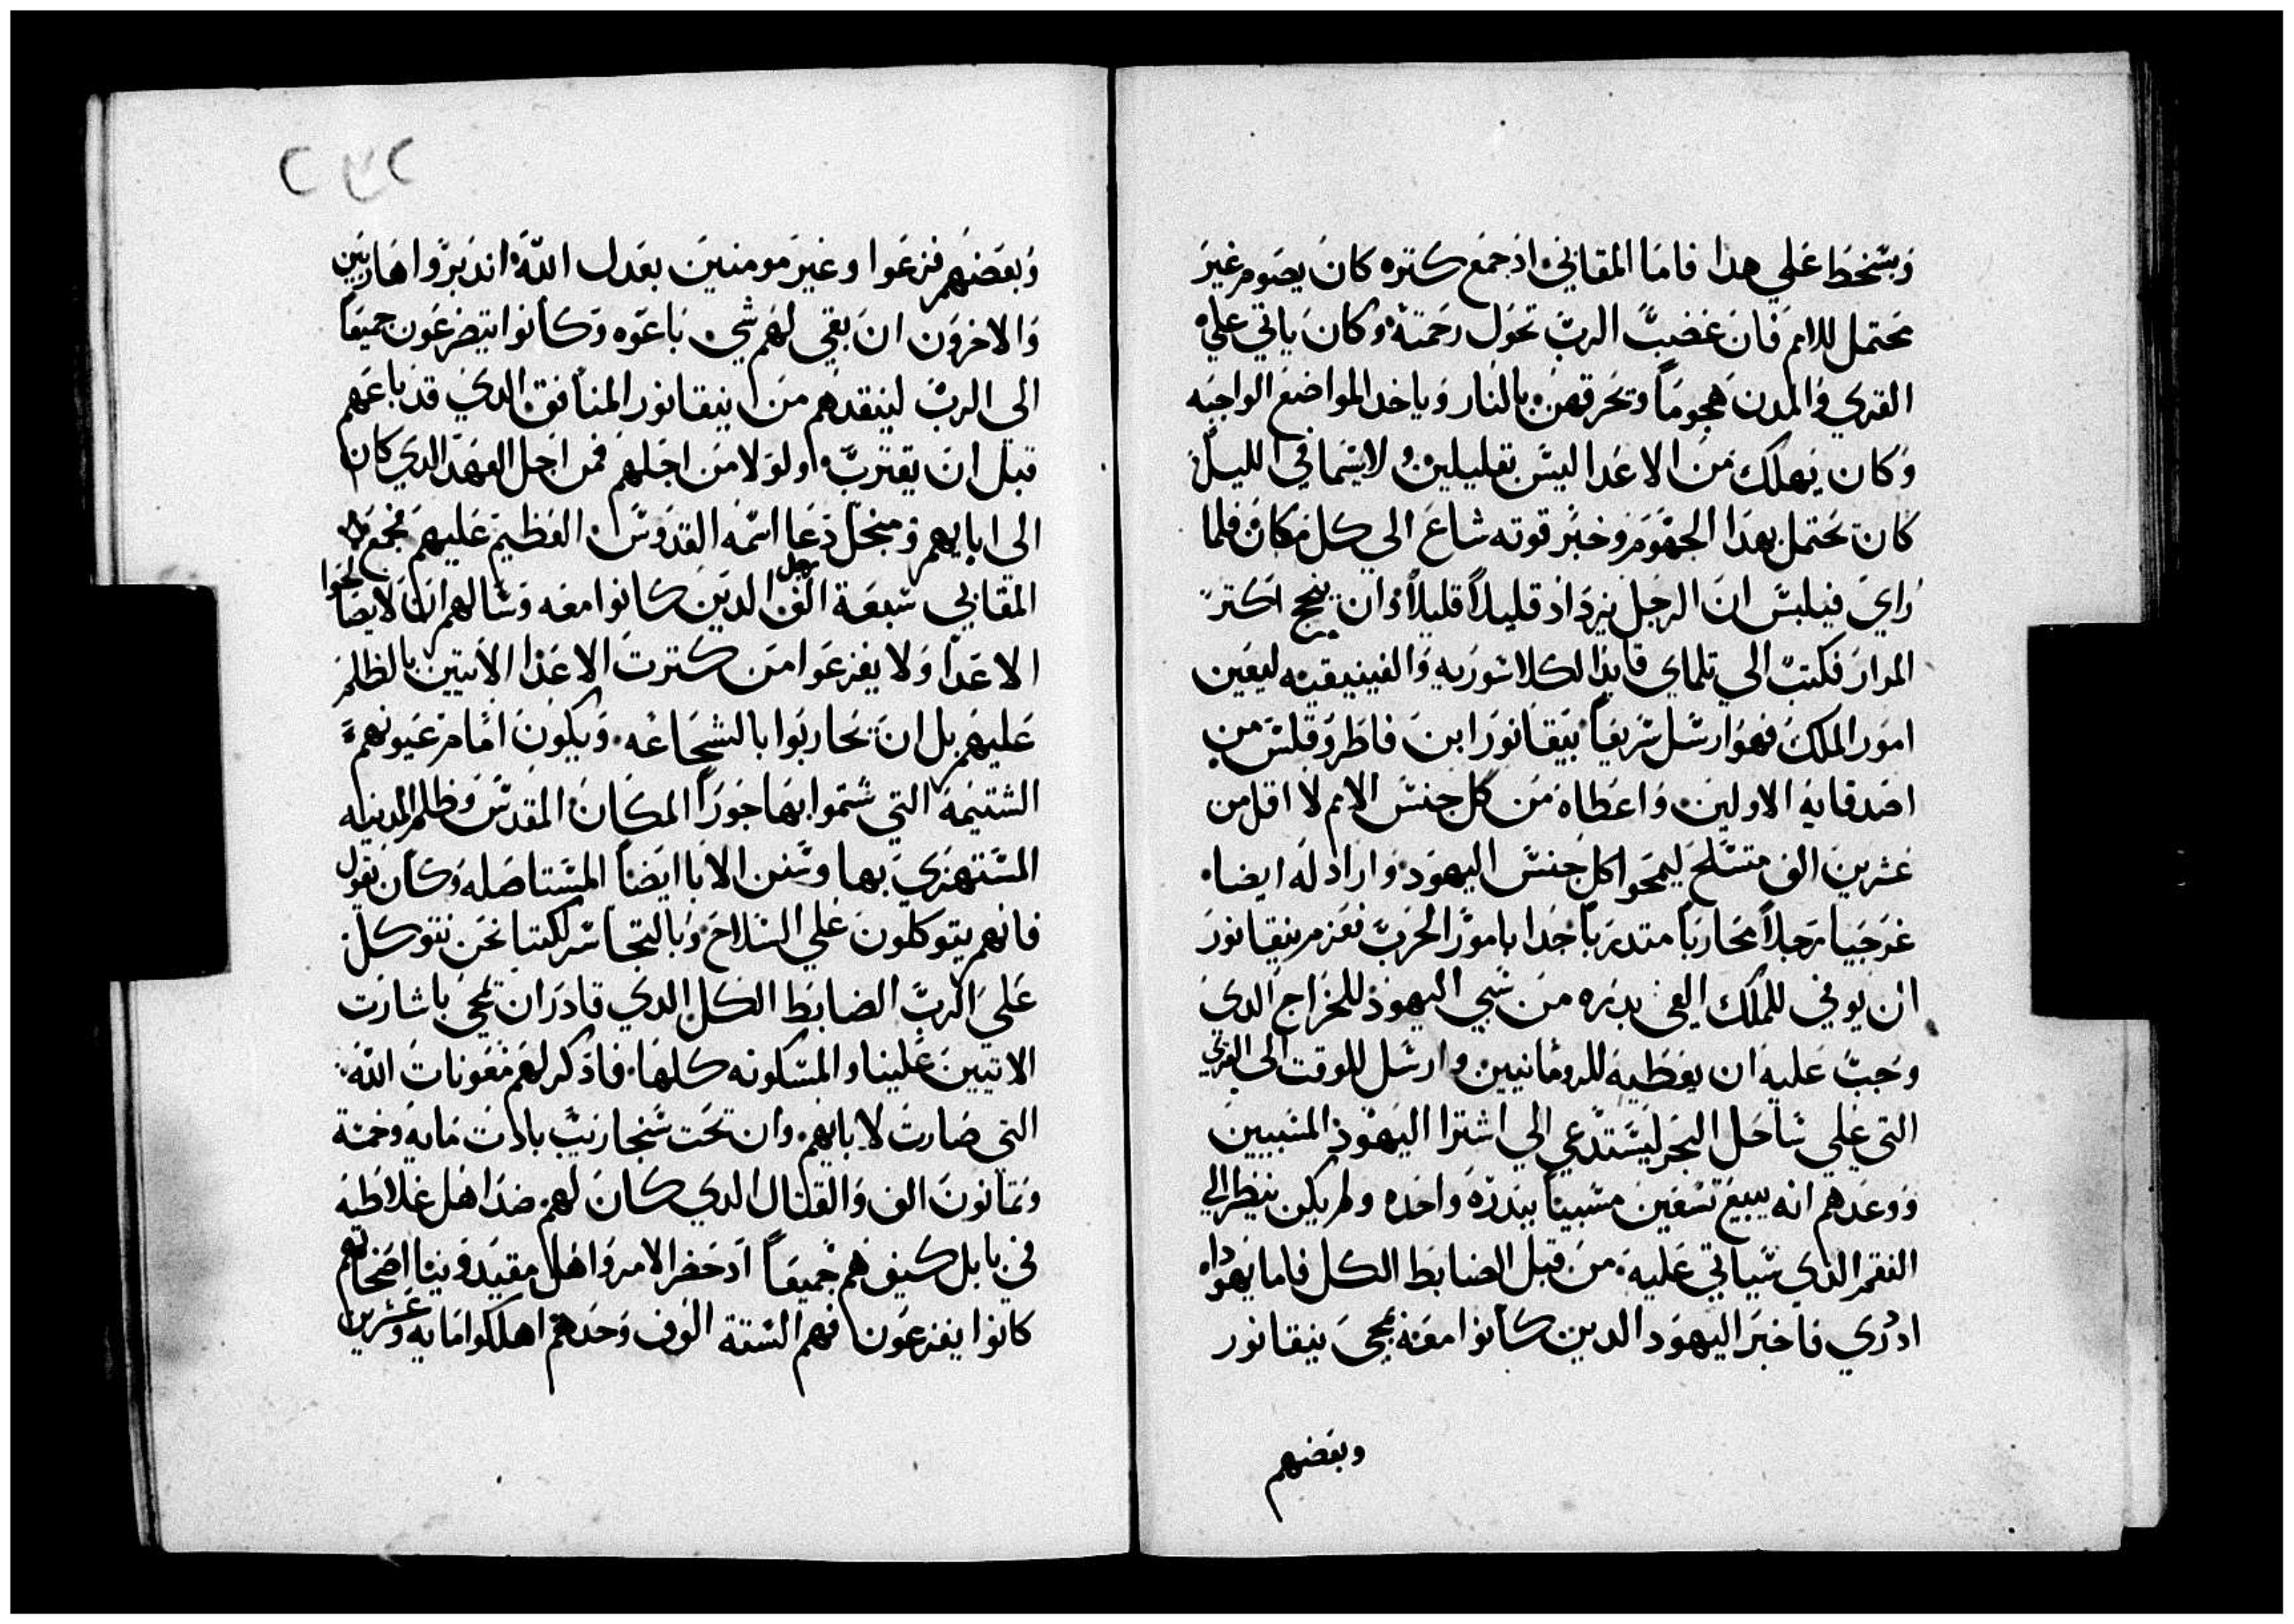 وَسّخط عَلي هدا فامَا المقابي ادَ جمَع كتره كانَ يصَوم غيَر
محَتمل للامَم فَانَ غضبَ الربَّ تحَول رحَمتهَ وكانَ ياتي علي
القري وَالمدن هجومَاً وتحَرقهن بالنَار وَياخد المواضعَ الواجبَه
وَكان يَهلك مَن الاعَدا ليسّ بقليلين ولاسّيما في الليل
كانَ يحَتمل بعدَا الجهَوَم وخبَر قوته شاعَ الي كل مَكان فلما
رَايَ فيلبسّ انَ الرجَل يزدَاد قليلاً قليلاً وَان ينجح اكتر
المرار فكتبَ الي تلماي قايدَا لكلاسّوريه وَالفينيقيه ليعَين
امَور الملك فهوَ ارسّل سّريعَاً نيقَانوَر ابن فاطرَوقلسّ من
اصَدقايهَ الاولين وَاعَطاه مَن كل جنسّ الامم لا اقل من
عَشرينَ الف متسّلحَ ليمحَوا كل جَنسّ اليهوَد وَارادَ له ايضاَ
غرَجَيا رَجَلاً محَاربَاً متدرَباً جَدا باموَر الحَربّ فعَزم نيقانورَ
ان يوفي للملك الفي بدَره مَن سّبي اليهوَد للخرَاج الديَ
وجَبَّ عَليهَ ان يعَطيهَ للرومَانيين وارسّل للوقت الي القري
التي عَلي سّاحَل البحَر ليسّتدَعي الي اشترا اليَهوَد المسّبيين
وَوعَدهم انه يبيعَ تسّعَين مسّبيَاً ببَدرهَ واحَده ولم يكن ينظر الي
النقم الدي سّياتي عَليهَ مَن قبَل الضابَط الكل فاما يَهوَداه
ادَ دري فاخبَر اليهوَد الدين كانوا معَه بمجيَ نيقانور
وبعَضهم
٢٣٢
وَبعَضهَم فزعَوا وغيرَ مَومنينَ بعَدل اللّهَ اندبَروَا هَاربَين
وَالاخروَن انَ بقي لهَم شي بَاعَوه وَكانوا يتضرعَون جميعَاً
الى الربّ لينقدهَم مَن نيقانور المنَافق الديَ قدَ باعَهم
قبَل انَ يقتربّ اولوَلا مَن اجَلهم فمَن اجَل العهَد الدي كان
الى ابايهم وَمنجَل دَعَا اسّمَه القدَوسّ العَظيم عَليهم فجمَع
المقابي سّبعَة الفَ رجل الدَين كانوا معَه وَسّالهم انَ لايصَالحوا
الاعَدا وَلا يفزعَوا مَن كترتَ الاعَدا الاتيين بالظلم
عَليهَم بل انَ يحَاربَوا بالشجَاعَه وَيكونَ امَام عَيونهم
الشتيمَة التي شتموا بهَا جَورَاً المكَانَ المقدَسّ وَظلم المدينه
المسّتهزي بَها وسّنن الابَا ايضَاً المسّتاصَله وَكانَ يقول
فانهم يتوكلونَ عَلي السّلاحَ وَبالتجَاسّر لكننا نحَن نتوكل
عَلي الربَّ الضابَط الكل الدي قادرَ ان يمحَي باشارَت
الاتيينَ عَلينا والمسّكونه كلهَا فادَكر لهَم مَعَوناتَ اللّه
التي صَارتَ لابايهم وان تحَت سّنحاريبّ بادَت مَايه وَخمسّة
وَتمَانونَ الف وَالقتال الدي كانَ لهم ضدَ اهَل غلاطيه
في بابل كيف هَم جَميعَاً ادَ حَضر الامر وَاهَل مقيدَونيا اصَحَابهم
كانوا يفزعَون فهم السّتة الوَف وَحَدهم اهلكوا مَايه وَعَشرين